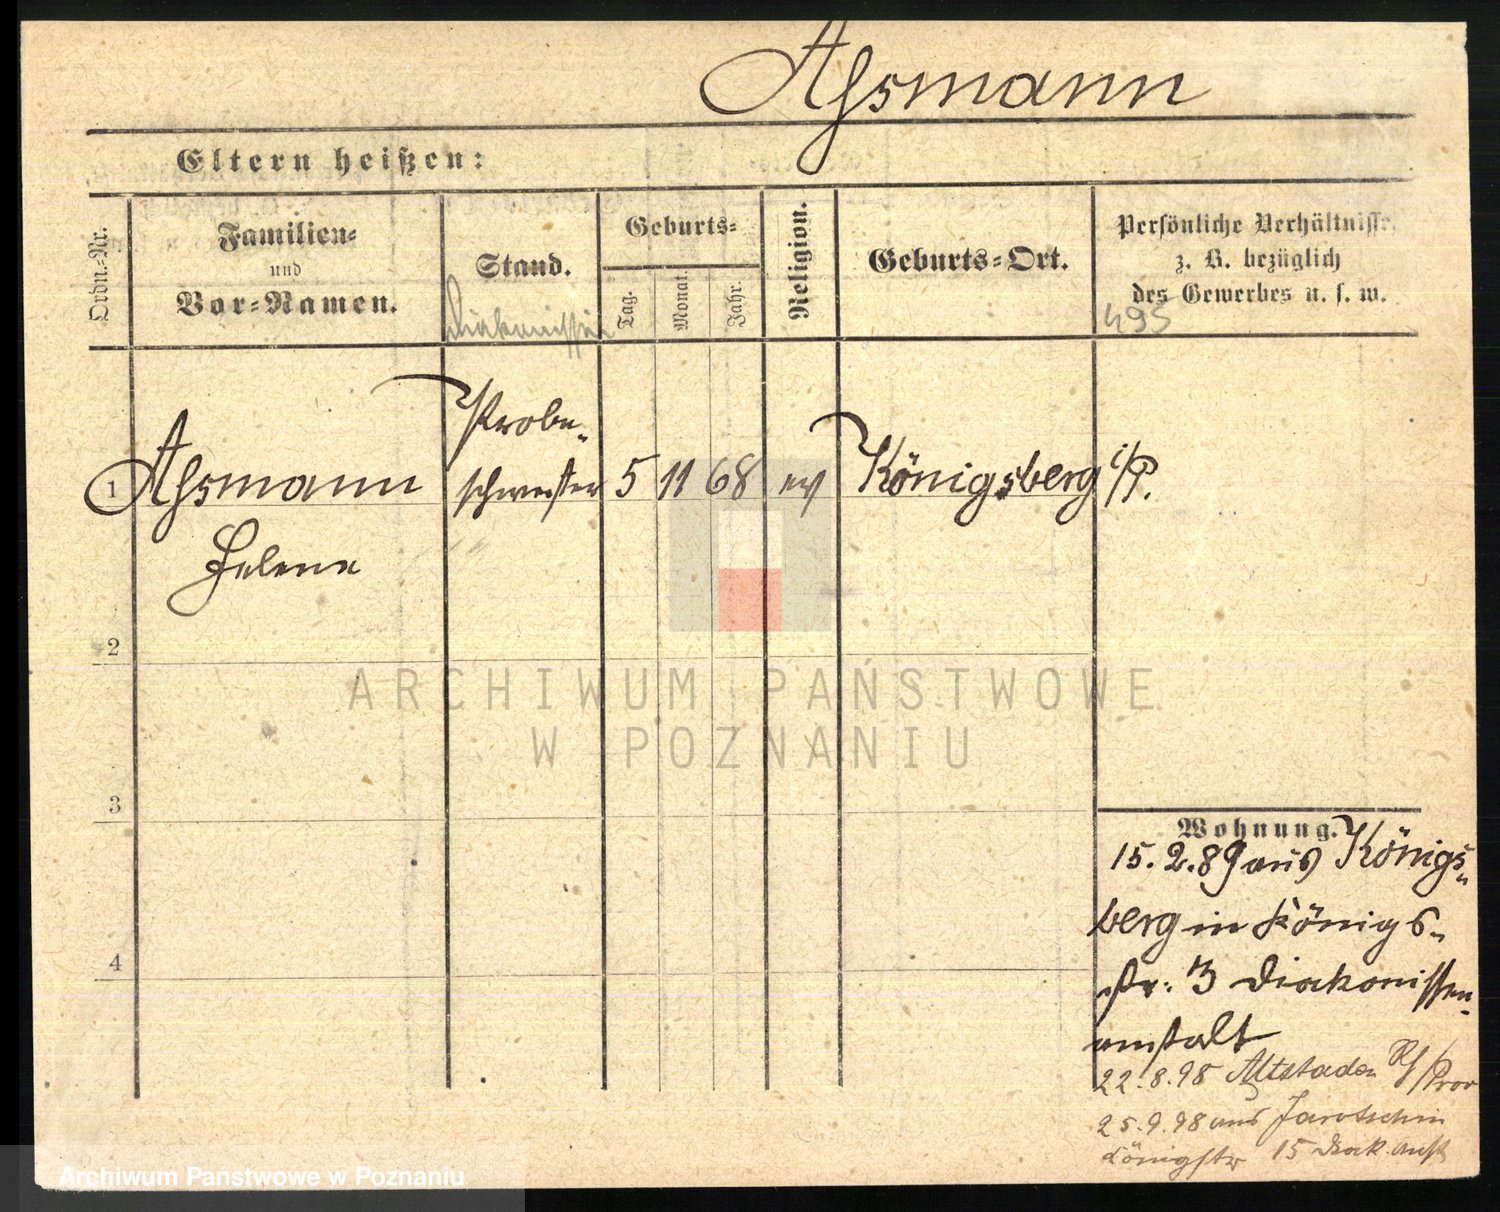 Assmann
Eltern heißen:
Ordn.-Nr.
Familien-
und
Vor-Namen.
Stand.
Diakonissin
Geburts-
Tag.
Monat.
Jahr.
Religion.
Geburts-Ort.
Persönliche Verhältnisse,
z. B. bezüglich
des Gewerbes u. s. w.
495
Probe-
1 Assmann schwester 5 11 68 ev Königsberg i/P.
Helene
2
3
4
Wohnung.
15.2.89 aus Königs-
berg in Königs-
str: 3 Diakonissen-
anstalt
22.8.98 Altstaden
25.9.98 aus Jarotschin
Königstr 15 Diak. Anst
ARCHIWUM PAŃSTWOWE
W POZNANIU
Archiwum Państwowe w Poznaniu